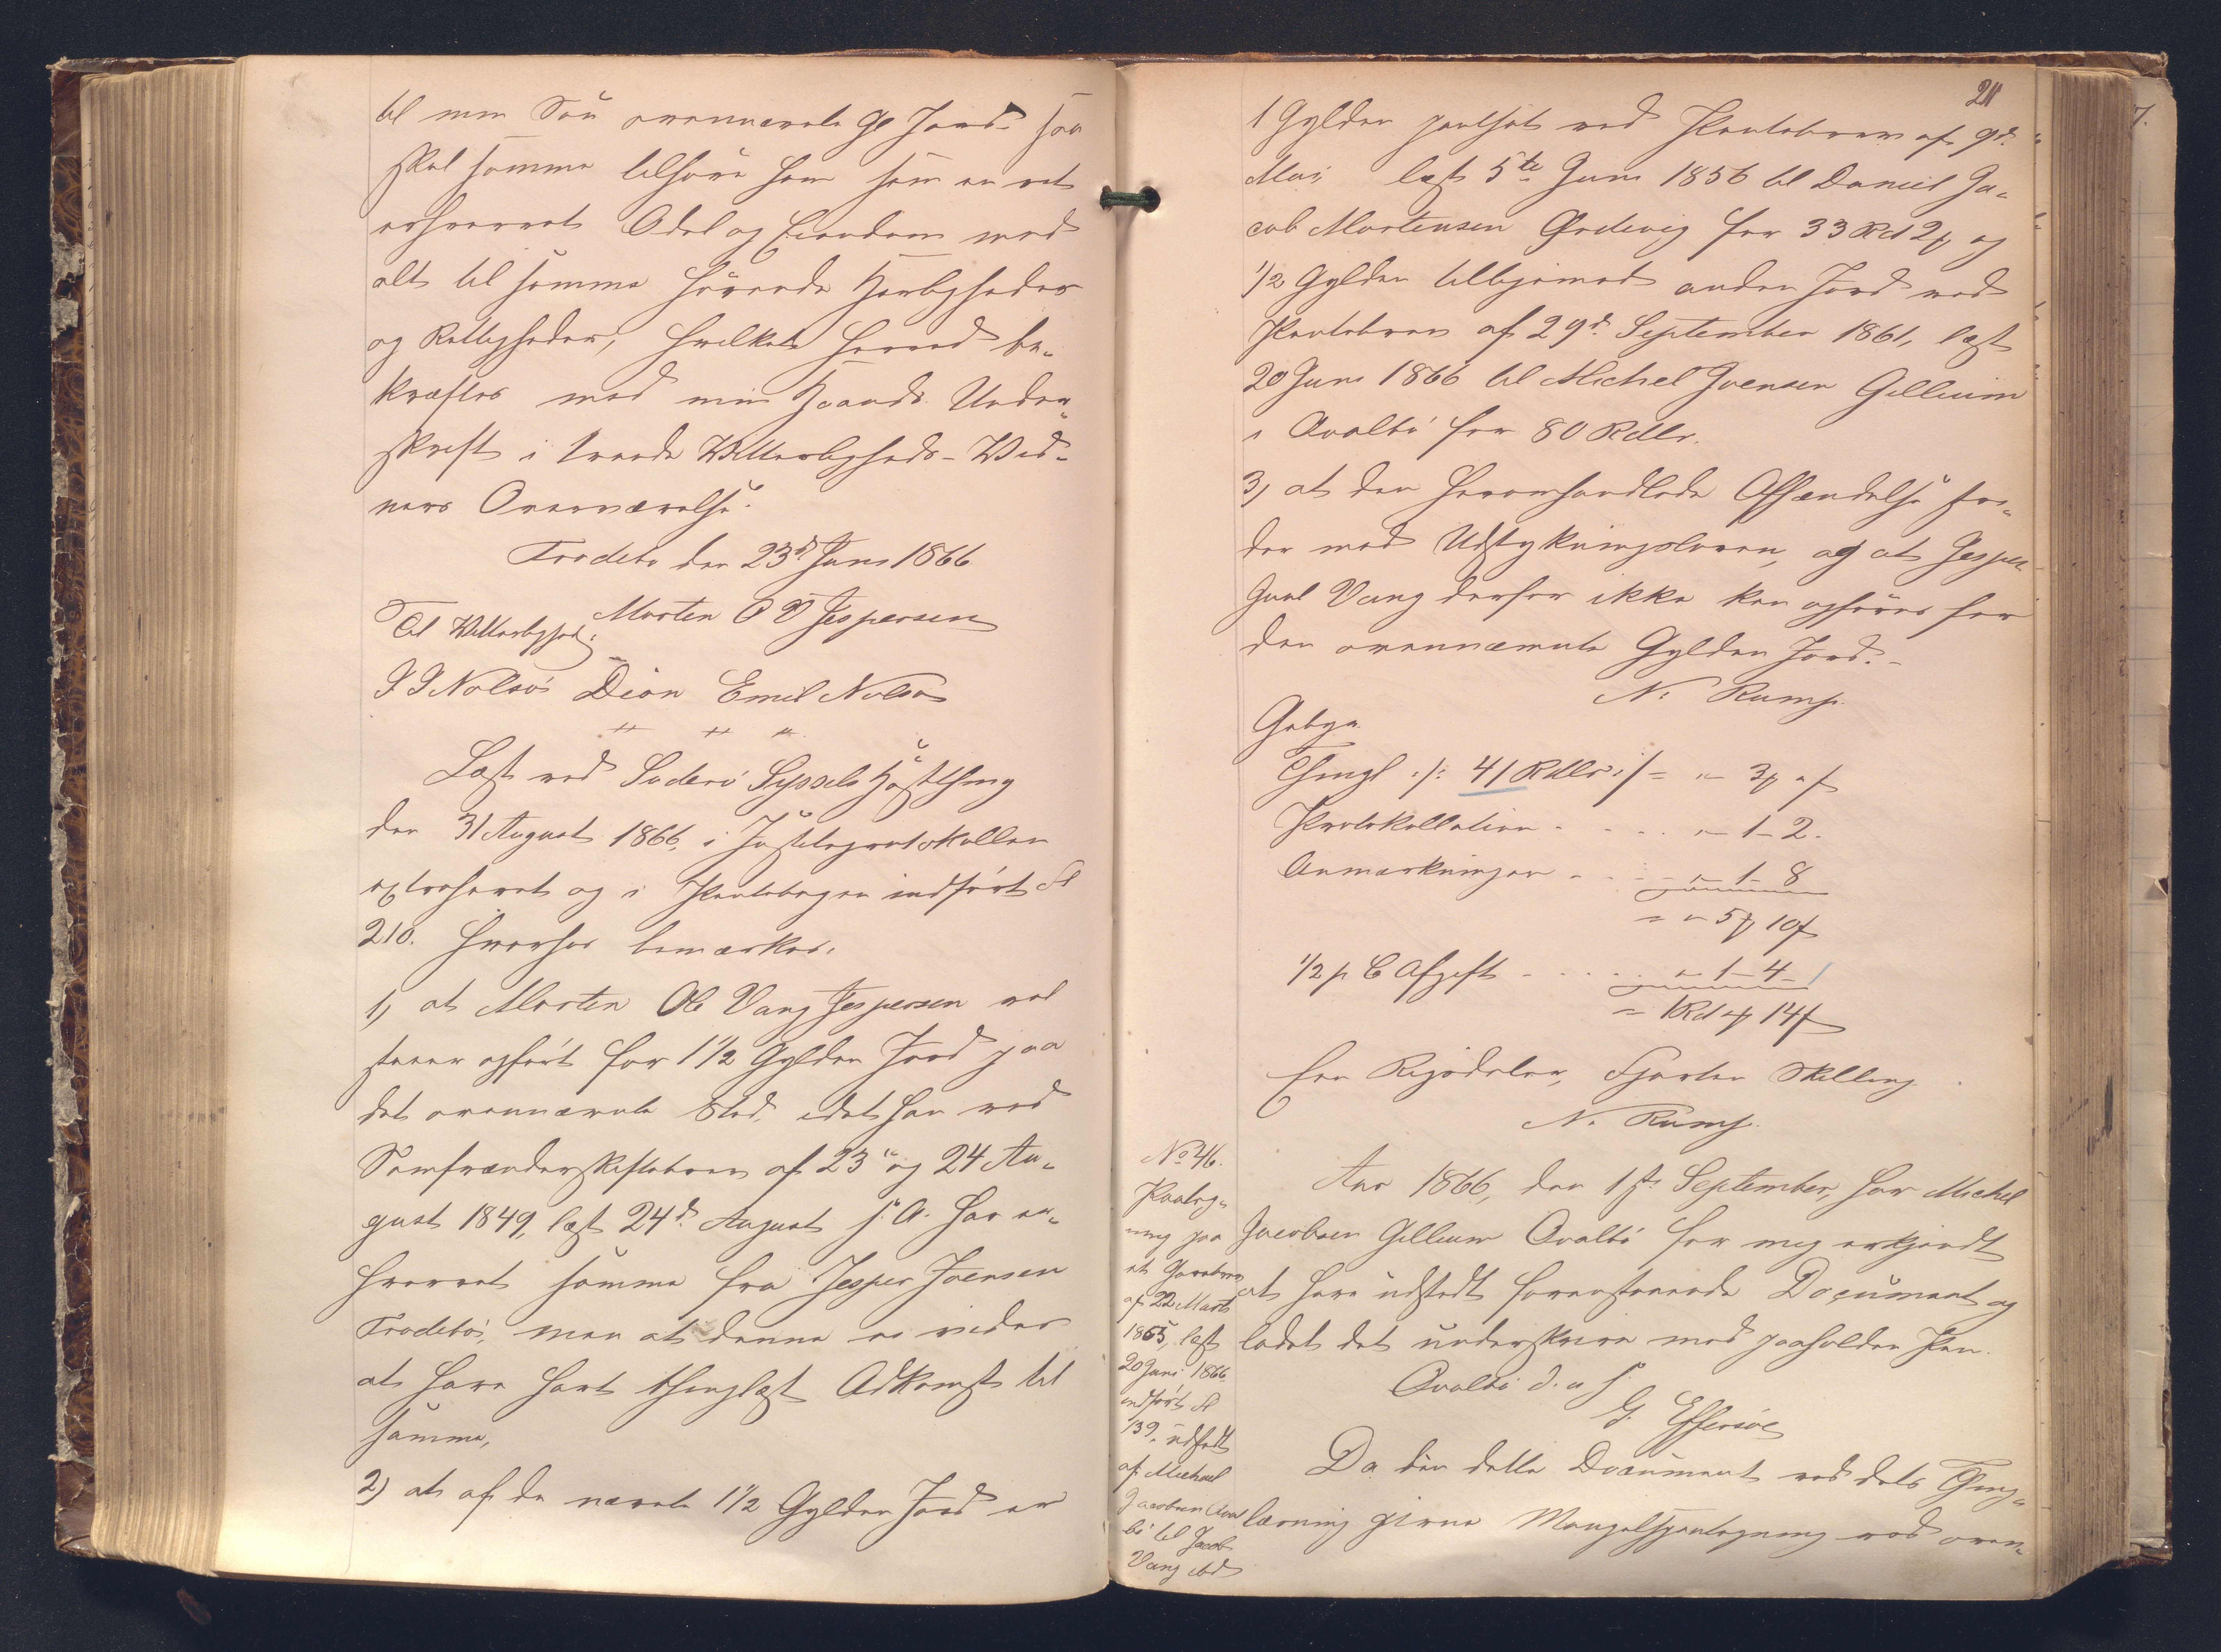 til min Søn ovennævnte Gl Jord saa
skal samme tilhøre ham som en ret
erhvervet Odel og Eiendom med
alt til samme hørende Herligheder
og Rettigheder, hvilket herved be-
kræftes med min Haands Under-
skrift i tvende Vitterligheds-Vid-
ners Overværelse.
Frodebø den 23d Juni 1866
Morten O V Jespersen
Til Vitterlighed:
J J Nolsøe Dion Emil Nolsøe
" " "
Læst ved Suderø Syssels Høstthing
den 31 August 1866, i Justitsprotokollen
extraheret og i Pantebogen indført Fol
210. hvorhos bemærkes:
1, at Morten Ole Vang Jespersen vel
staaer opført for 1 1/2 Gylden Jord paa
det ovennævnte Sted, idet han ved
Samfrændeskiftebrev af 23de og 24 Au-
gust 1849, læst 24d August s. A. har er-
hvervet samme fra Jesper Joensen
Frodebø, men at denne es vides
at have havt thinglæst Adkomst til
samme,
2) at af de nævnte 1 1/2 Gylden Jord er
211
1 Gylden pantsat ved Pantebrev af 9d
Mai læst 5te Juni 1856 til Daniel Ja-
cob Mortensen Ørdevig for 33 Rd 2 og
1/2 Gylden tilligemed anden Jord ved
Pantebrev af 29d September 1861, læst
20 Juni 1866 til Michel Joensen Gilleum
i Qvalbø for 80 Rdlr.
3, at den heromhandlede Afhændelse stri-
der mod Udstykningsloven, og at Jesper
Juul Vang derfor ikke kan opføres for
den ovennævnte Gylden Jord.
N. Rump.
Gebyr.
Thingl :/: 41 Rdlr :/: = " 3
Protokollation - - - - " 1 - 2.
Anmærkninger - - - - 1 - 8
= " 5 10
1/2 p C Afgift - - - - - " 1 - 4 -
= 1 Rd 14
Een Rigsdaler, Fjorten Skilling.
N. Rump.
No 46.
Paateg-
ning paa
et Gavebrev
af 22 Marts
1865, læst
20 Juni 1866
indført Fol
139, udstedt
af Michael
Jacobsen Qval
bø til Jacob
Vang ibd
Aar 1866, den 1ste September, har Michel
Jacobsen Gilleum Qvalbø for mig erkjendt
at have udstedt foranstaaende Document og
ladet det underskrive med paaholden Pen.
Qvalbø d. a s.
G. Effersøe
Da der dette Document ved dets Thing-
læsning givne Mangelspaategning ved oven-